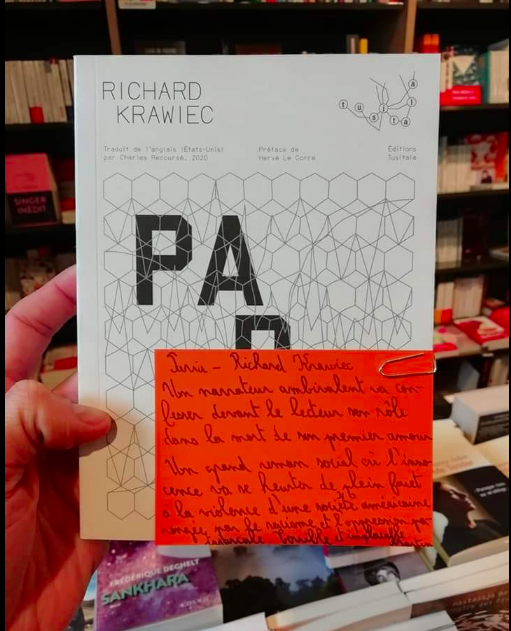 RICHARD
KRAWIEC
tusitala
Traduit de l'anglais (États-Unis)
par Charles Recoursé, 2020
Préface de
Hervé Le Corre
Éditions
Tusitala
PA
R
Richard Krawiec
Un narrateur ambivalent va con-
fesser devant le lecteur son rôle
dans la mort de son premier amour
Un grand roman social où l'inno-
cence va se heurter de plein fouet
à la violence d'une société américaine
rongée par le racisme et l'oppression pa-
triarcale
SINGER
INÉDIT
FRÉDÉRIQUE DEGHELT
SANKHARA